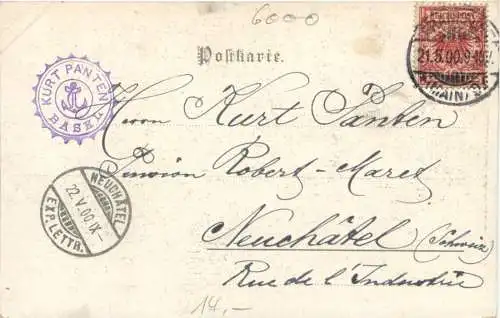 6000
Postkarte.
REICHSPOST
21.5.00.9-10V.
(MAIN)
KURT PANTEN
BASEL
Herrn Kurt Panten
Pension Robert-Maret
Neuchâtel (Schweiz)
Rue de l'Industrie
NEUCHÂTEL
22.V.00.IX-
EXP. LETTR.
14,-